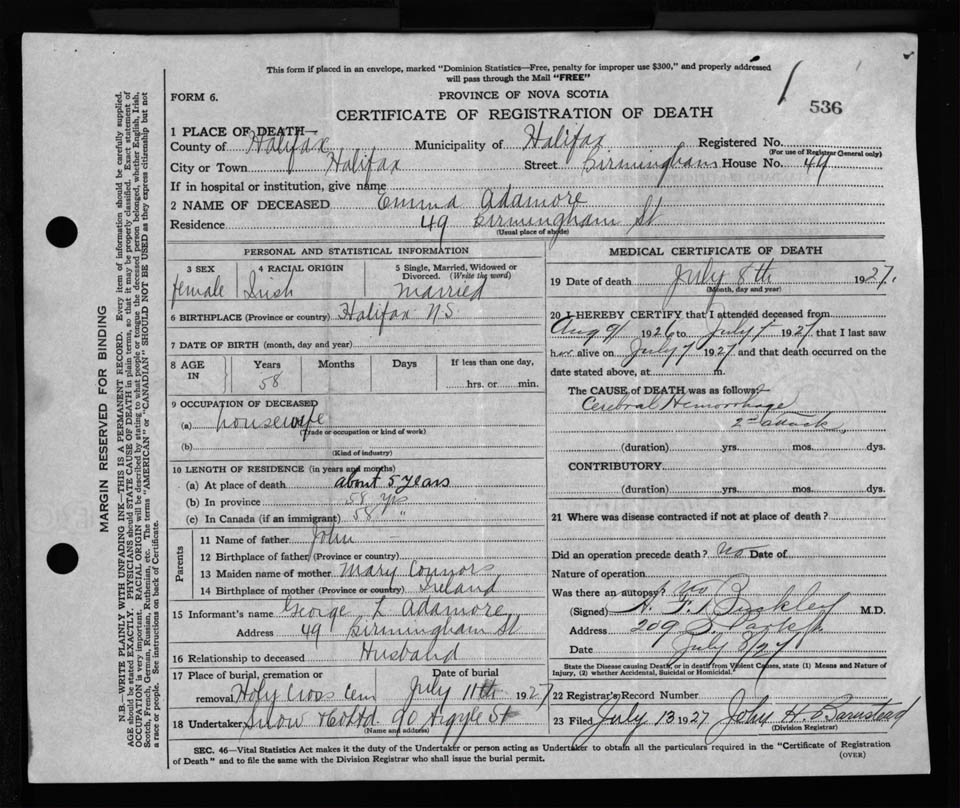 This form if placed in an envelope, marked "Dominion Statistics—Free, penalty for improper use $300," and properly addressed
will pass through the Mail "FREE"
FORM 6.
PROVINCE OF NOVA SCOTIA
536
CERTIFICATE OF REGISTRATION OF DEATH
1 PLACE OF DEATH—
County of Halifax Municipality of Halifax Registered No.
(For use of Registrar General only)
City or Town Halifax Street Birmingham House No. 49
If in hospital or institution, give name
2 NAME OF DECEASED Emma Adamore
Residence 49 Birmingham St
(Usual place of abode)
PERSONAL AND STATISTICAL INFORMATION
3 SEX 4 RACIAL ORIGIN 5 Single, Married, Widowed or
Divorced. (Write the word)
female Irish married
6 BIRTHPLACE (Province or country) Halifax N.S.
7 DATE OF BIRTH (month, day and year)
8 AGE Years Months Days If less than one day,
IN 58 hrs. or min.
9 OCCUPATION OF DECEASED
(a) housewife
(Trade or occupation or kind of work)
(b)
(Kind of industry)
10 LENGTH OF RESIDENCE (in years and months)
(a) At place of death about 5 years
(b) In province 58 yrs
(c) In Canada (if an immigrant) 58 "
Parents
11 Name of father John
12 Birthplace of father (Province or country) —
13 Maiden name of mother Mary Connors
14 Birthplace of mother (Province or country) Ireland
15 Informant's name George L Adamore
Address 49 Birmingham St
16 Relationship to deceased Husband
17 Place of burial, cremation or Date of burial
removal Holy Cross Cem July 11th 1927
18 Undertaker Snow & Co Ltd 90 Argyle St
(Name and address)
MEDICAL CERTIFICATE OF DEATH
19 Date of death July 8th 1927.
(Month, day and year)
20 I HEREBY CERTIFY that I attended deceased from
Aug 9/ 1926 to July 7 1927 that I last saw
her alive on July 7 1927 and that death occurred on the
date stated above, at m.
The CAUSE of DEATH was as follows:
Cerebral Hemorrhage
2nd attack
(duration) yrs. mos. dys.
CONTRIBUTORY
(duration) yrs. mos. dys.
21 Where was disease contracted if not at place of death?
Did an operation precede death? No Date of
Nature of operation
Was there an autopsy? No
(Signed) M.D.
Address 209 S. Park St
Date July 8/27
State the Disease causing Death, or in death from Violent Causes, state (1) Means and Nature of
Injury, (2) whether Accidental, Suicidal or Homicidal.
22 Registrar's Record Number
23 Filed July 13 1927 John H. Barnstead
(Division Registrar)
SEC. 46—Vital Statistics Act makes it the duty of the Undertaker or person acting as Undertaker to obtain all the particulars required in the "Certificate of Registration
of Death" and to file the same with the Division Registrar who shall issue the burial permit.
(OVER)
MARGIN RESERVED FOR BINDING
N.B.—WRITE PLAINLY WITH UNFADING INK—THIS IS A PERMANENT RECORD. Every item of information should be carefully supplied.
AGE should be stated EXACTLY. PHYSICIANS should STATE CAUSE OF DEATH in plain terms, so that it may be properly classified. Exact statement of
OCCUPATION is very important. RACIAL ORIGIN will be described by stating to what people or tongue the deceased person belonged, whether English, Irish,
Scotch, French, German, Russian, Ruthenian, etc. The terms "AMERICAN" or "CANADIAN" SHOULD NOT BE USED as they express citizenship but not
a race or people. See instructions on back of Certificate.